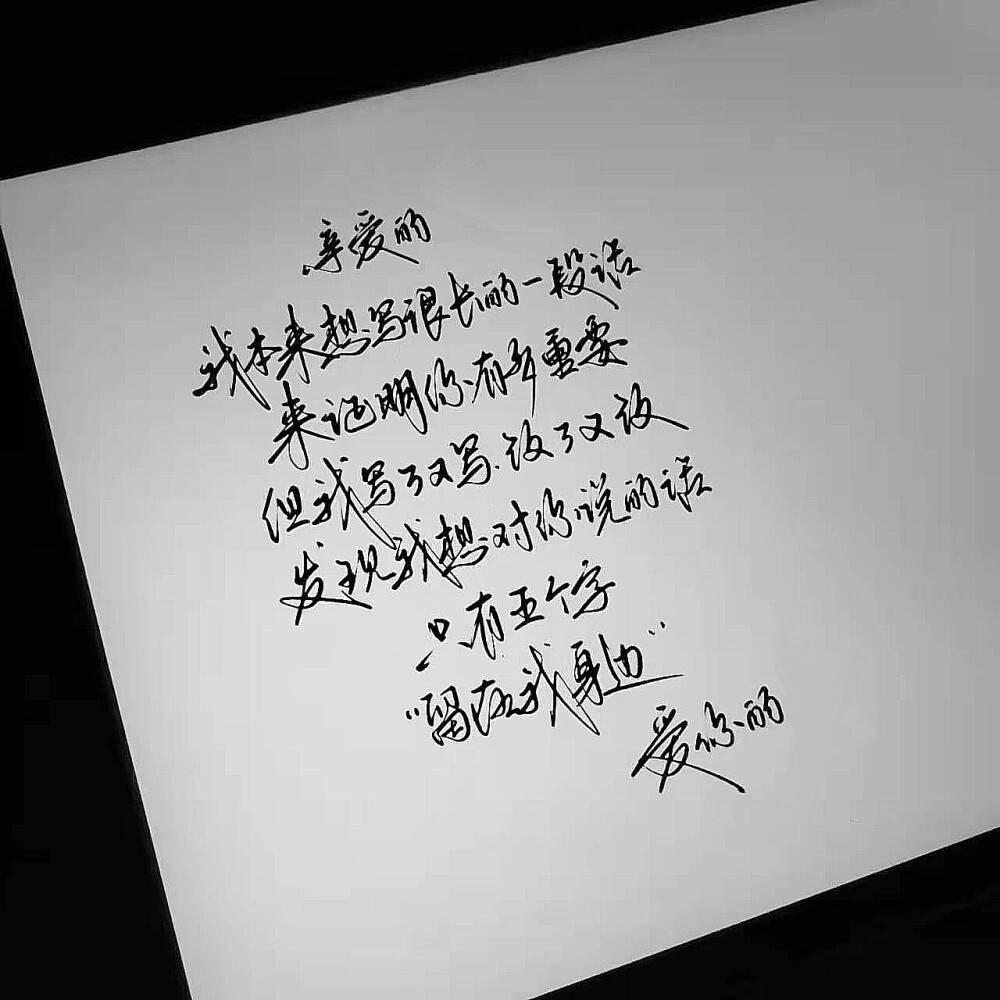 亲爱的
我本来想写很长的一段话
来证明你有多重要
但我写了又写.改了又改
发现我想对你说的话
只有五个字
“留在我身边”
爱你的